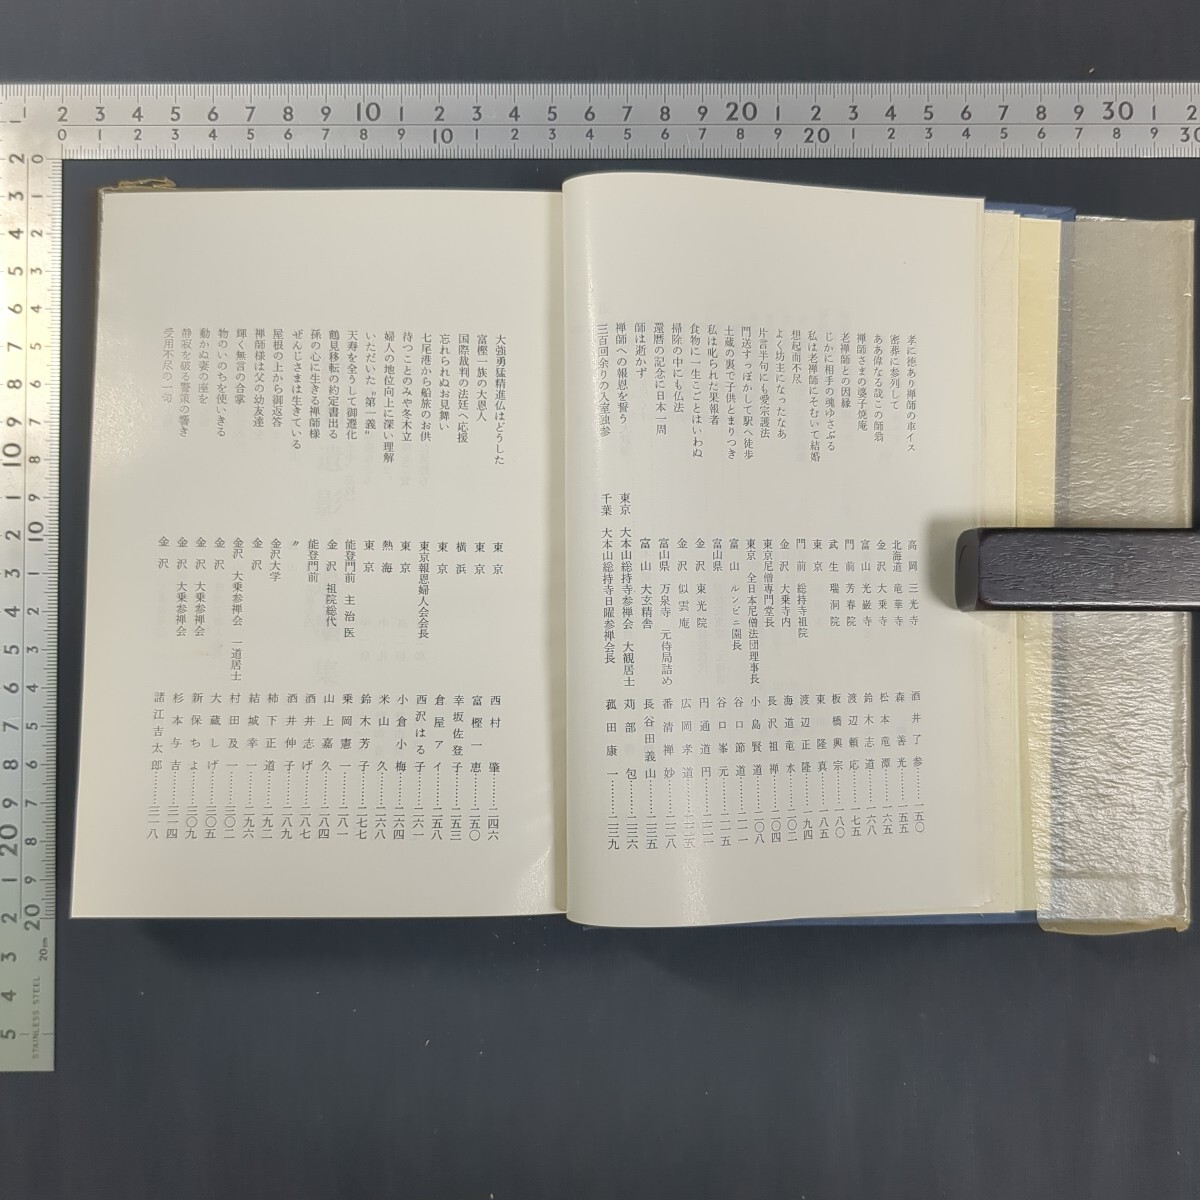 孝に徳あり禅師の車イス 高岡 三光寺 酒井了参……一五〇
密葬に参列して 北海道 竜華寺 森善光……一五五
ああ偉なる哉この師翁 金沢 大乗寺 松本竜潭……一六五
禅師さまの婆子焼庵 富山 光厳寺 鈴木志道……一六八
老禅師との因縁 門前 芳春院 渡辺頼応……一七五
じかに相手の魂ゆさぶる 武生 瑞洞院 板橋興宗……一八〇
私は老禅師にそむいて結婚 東京 東隆真……一八五
想起而不尽 門前 総持寺祖院 渡辺正隆……一九四
よく坊主になったなあ 金沢 大乗寺内 海道竜水……二〇二
片言半句にも愛宗護法 東京尼僧専門堂長 長沢祖禅……二〇四
門送すっぽかして駅へ徒歩 東京 全日本尼僧法団理事長 小島賢道……二〇八
土蔵の裏で子供とまりつき 富山 ルンビニ園長 谷口節道……二一一
私は叱られた果報者 富山県 谷口峯元……二一五
食物に一生こごとはいわぬ 金沢 東光院 円通道円……二二一
掃除の中にも仏法 金沢 似雲庵 広岡孝道……二二五
還暦の記念に日本一周 富山県 万泉寺 元侍局詰め 番清禅妙……二二八
師は逝かず 富山 大玄精舎 長谷田義山……二三五
禅師への報恩を誓う 東京 大本山総持寺参禅会 大観居士 苅部包……二三六
三百回余りの入室独参 千葉 大本山総持寺日曜参禅会長 菰田康一……二三九
大強勇猛精進仏はどうした 東京 西村肇……二四六
富樫一族の大恩人 東京 富樫一恵……二五〇
国際裁判の法廷へ応援 横浜 幸坂佐登子……二五三
忘れられぬお見舞い 東京 倉屋アイ……二五八
七尾港から船旅のお供 東京報恩婦人会会長 西沢はる子……二六一
待つことのみや冬木立 東京 小倉小梅……二六四
婦人の地位向上に深い理解 熱海 米山久……二六八
いただいた"第一義" 東京 鈴木芳子……二七七
天寿を全うして御遷化 能登門前 主治医 乗岡憲一……二八一
鶴見移転の約定書出る 金沢 祖院総代 山上嘉久……二八四
孫の心に生きる禅師様 能登門前 酒井志げ……二八七
ぜんじさまは生きている 〃 酒井伸子……二八九
屋根の上から御返答 金沢大学 柿下正道……二九二
禅師様は父の幼友達 金沢 結城幸一……二九六
輝く無言の合掌 金沢 大乗参禅会 一道居士 村田及一……三〇二
物のいのちを使いきる 金沢 大蔵しげ……三〇五
動かぬ妻の座を 金沢 大乗参禅会 新保ちよ……三〇九
静寂を破る警策の響き 金沢 大乗参禅会 杉本与吉……三一四
受用不尽の一句 金沢 諸江吉太郎……三一八
STAINLESS STEEL 20cm